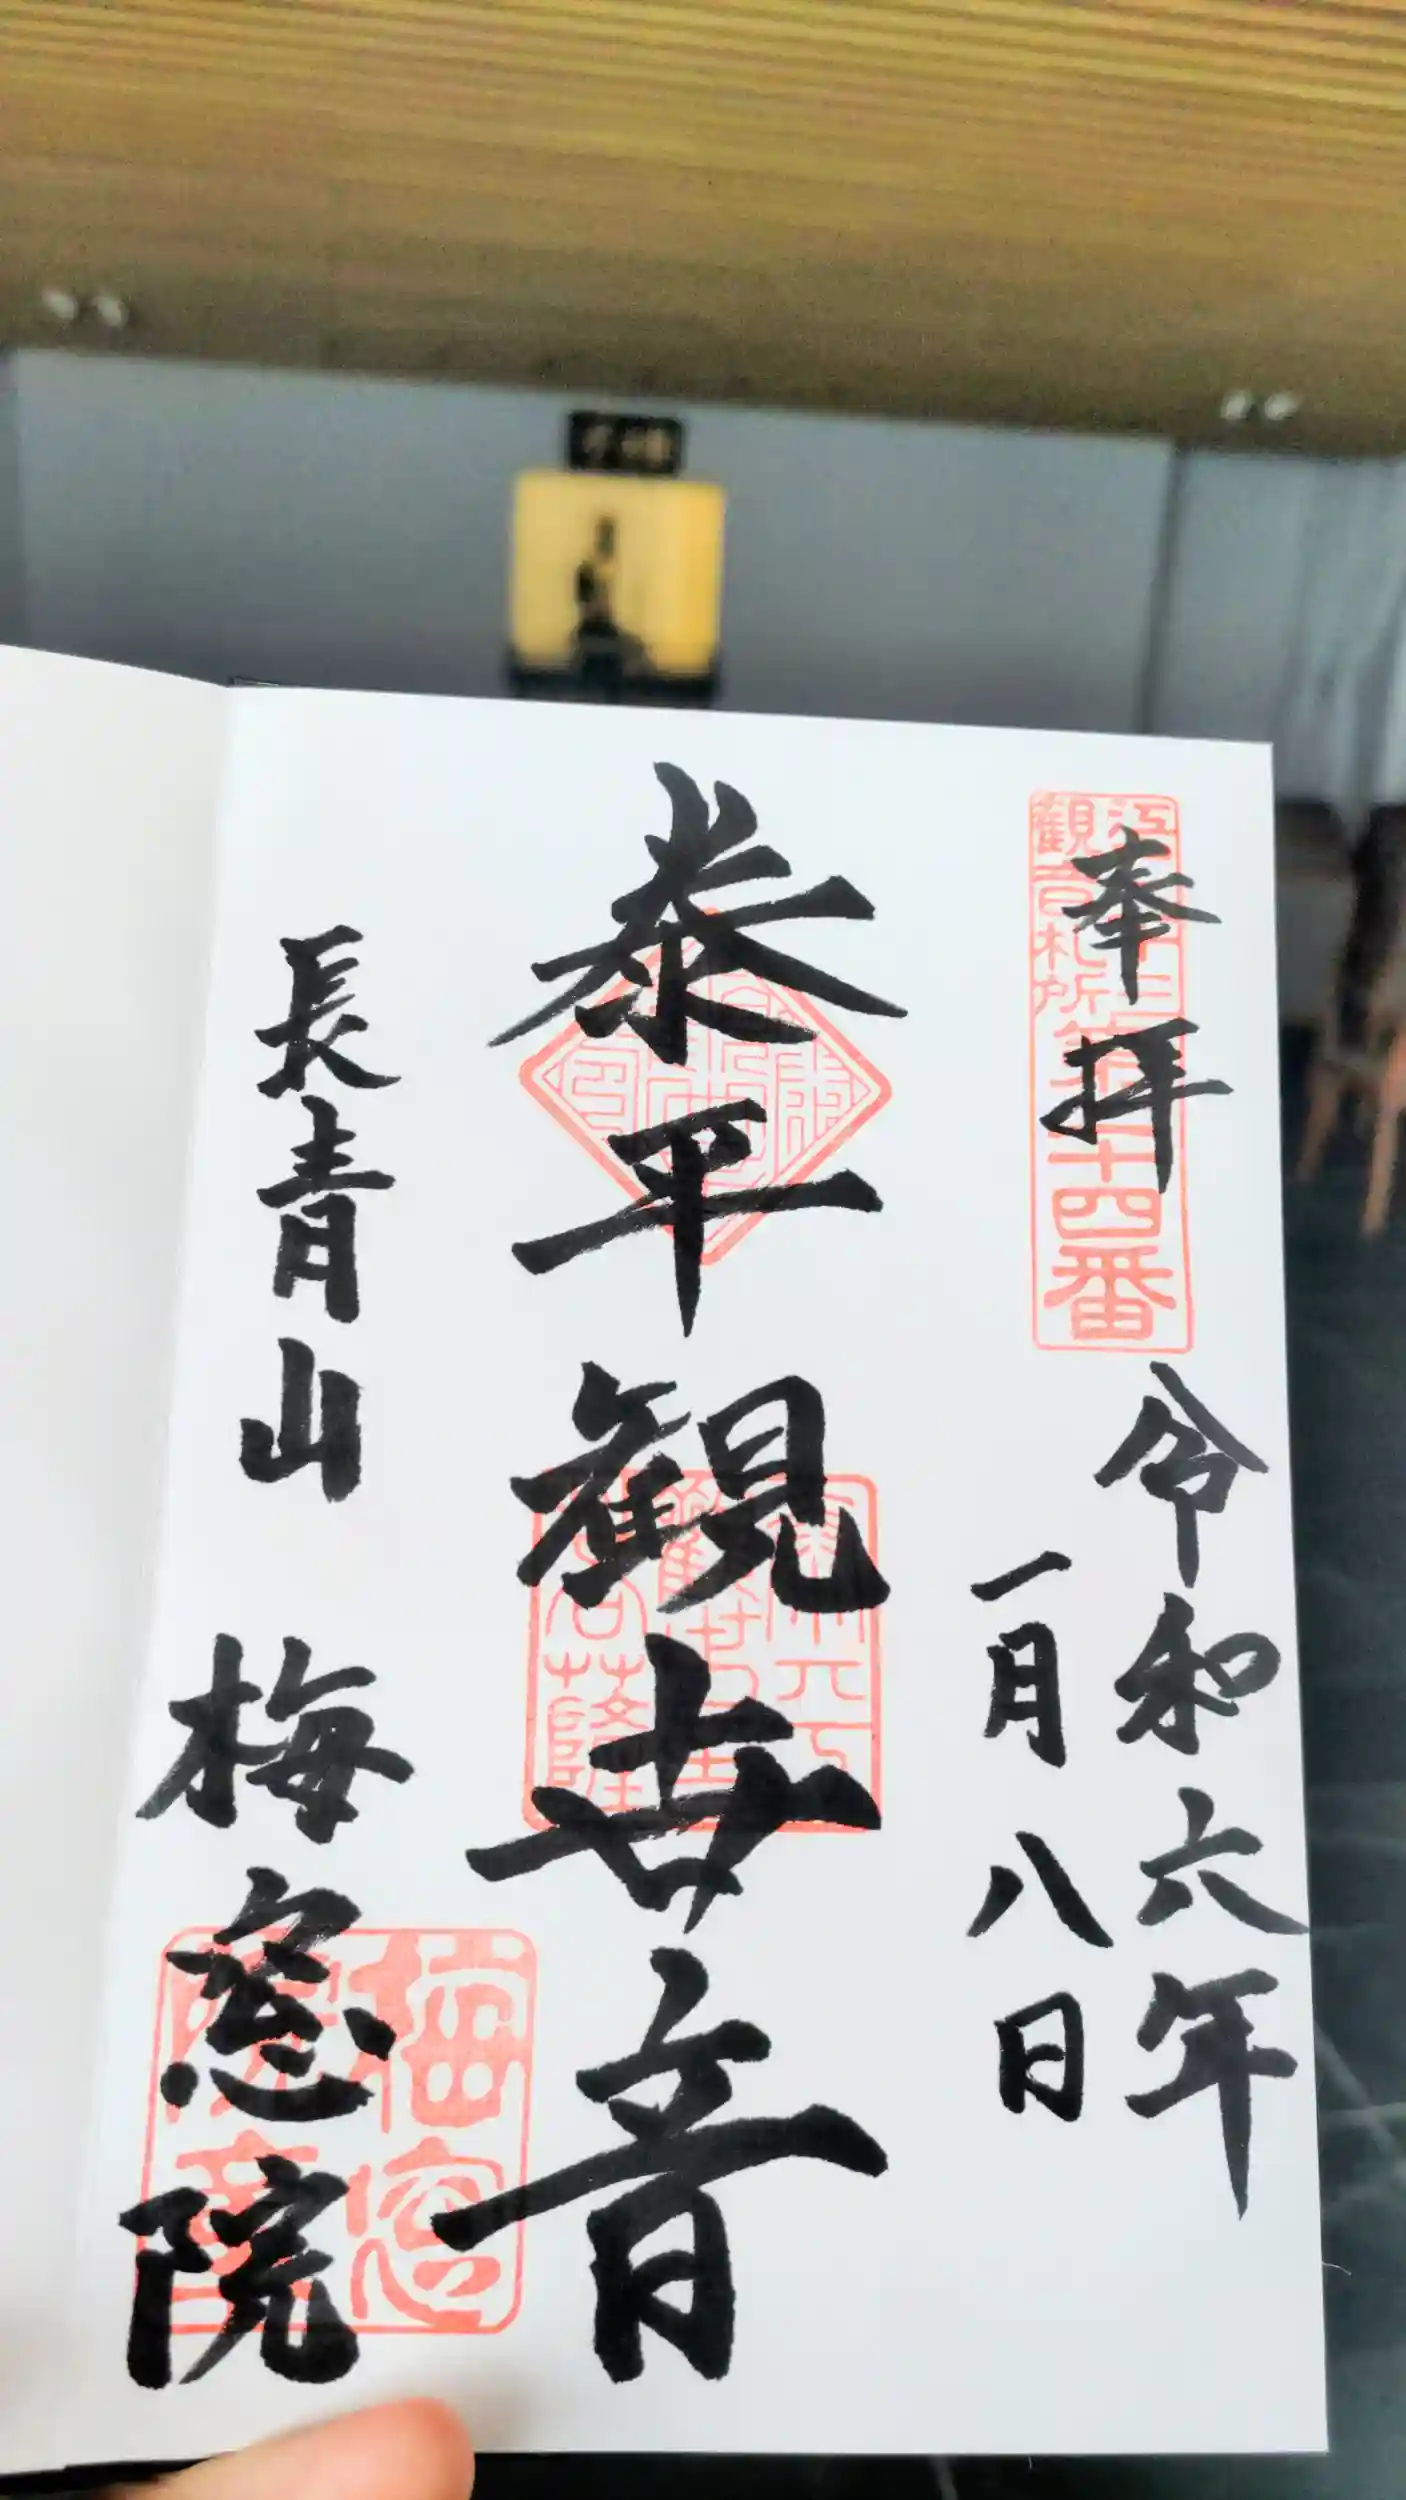 奉拝
令和六年
一月八日
泰平観世音
長青山 梅窓院
江戸三十三
観音札所
第二十四番